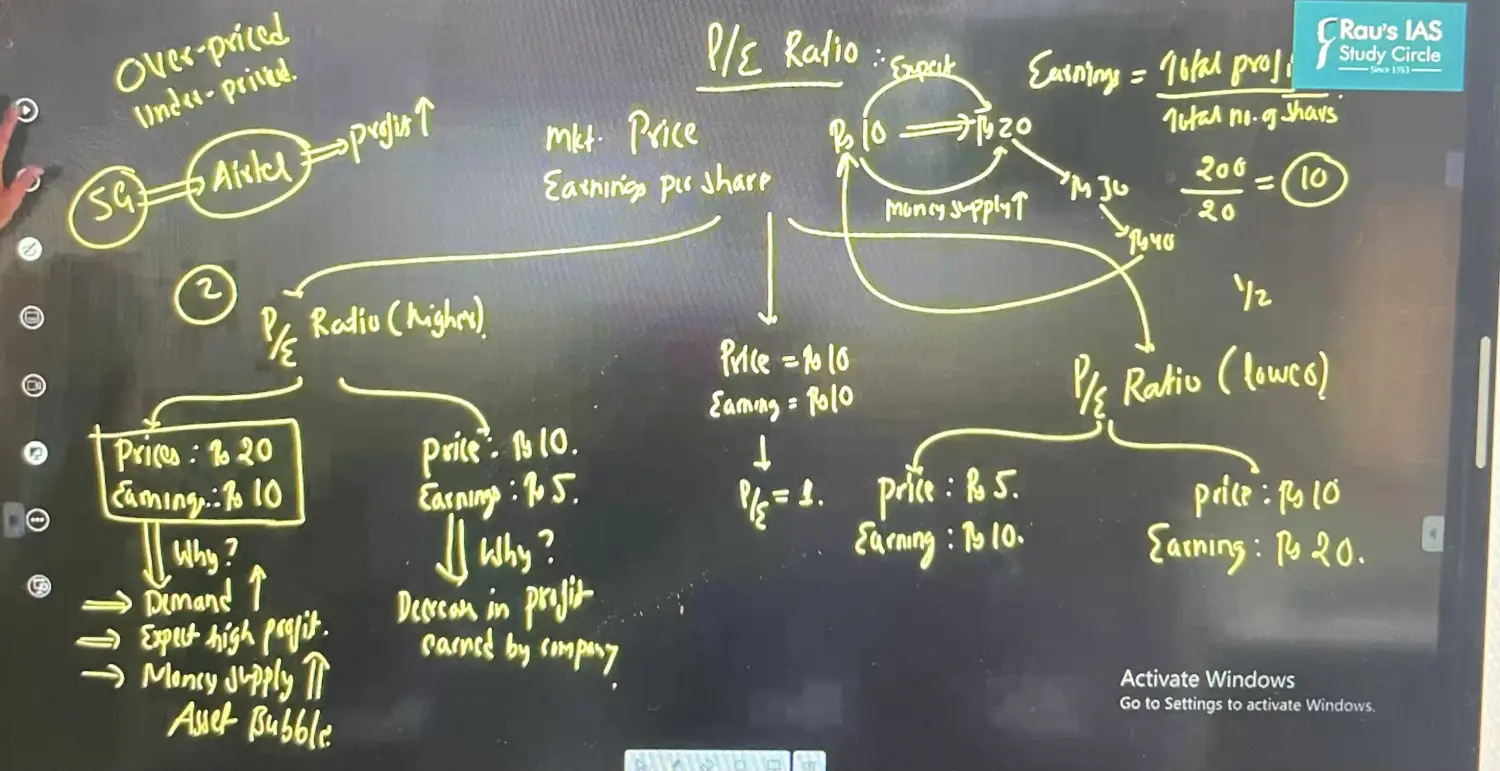 Over-priced
Under-priced.
5G ⇒ Airtel ⇒ profit ↑
P/E Ratio :
Expect
Rs 10 ⇒ Rs 20
Money supply ↑
Rs 30
Rs 40
Mkt. Price
Earnings per share
Earnings = Total profi
Total no. of shars
200
20
= 10
1/2
Rau's IAS
Study Circle
Since 1953
2
P/E Ratio (higher)
Prices : Rs 20
Earnings : Rs 10
Why?
⇒ Demand ↑
⇒ Expect high profit.
→ Money supply ⇑
Asset Bubble
Price : Rs 10.
Earnings : Rs 5.
Why?
Decrease in profit
earned by company.
Price = Rs 10
Earning = Rs 10
P/E = 1.
P/E Ratio (lower)
price : Rs 5.
Earning : Rs 10.
price : Rs 10
Earning : Rs 20.
Activate Windows
Go to Settings to activate Windows.